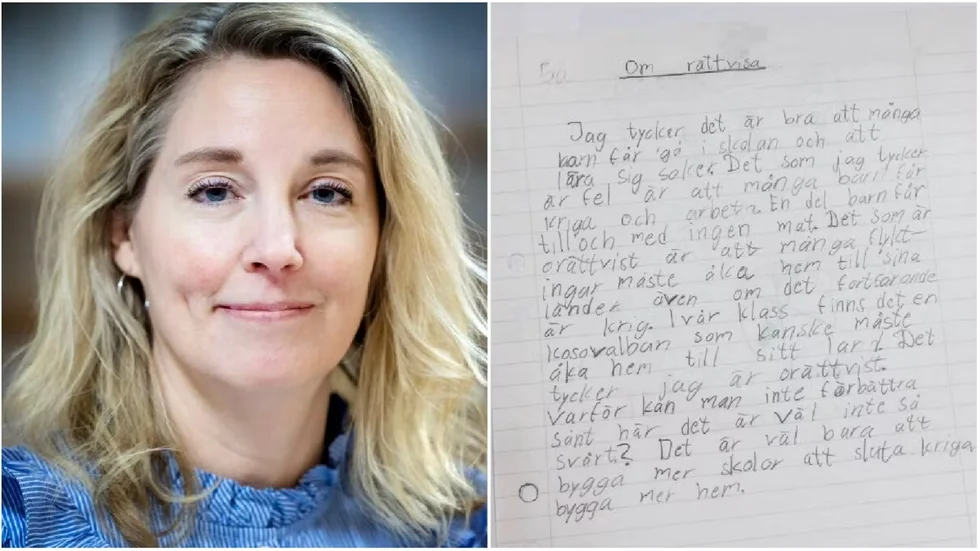 5a
Om rättvisa
Jag tycker det är bra att många
barn får gå i skolan och att
lära sig saker. Det som jag tycker
är fel är att många barn får
kriga och arbeta. En del barn får
till och med ingen mat. Det som är
orättvist är att många flykt-
ingar måste åka hem till sina
länder även om det fortfarande
är krig. I vår klass finns det en
kosovalban som kanske måste
åka hem till sitt land. Det
tycker jag är orättvist.
Varför kan man inte förbättra
sånt här det är väl inte så
svårt? Det är väl bara att
bygga mer skolor att sluta kriga
bygga mer hem.